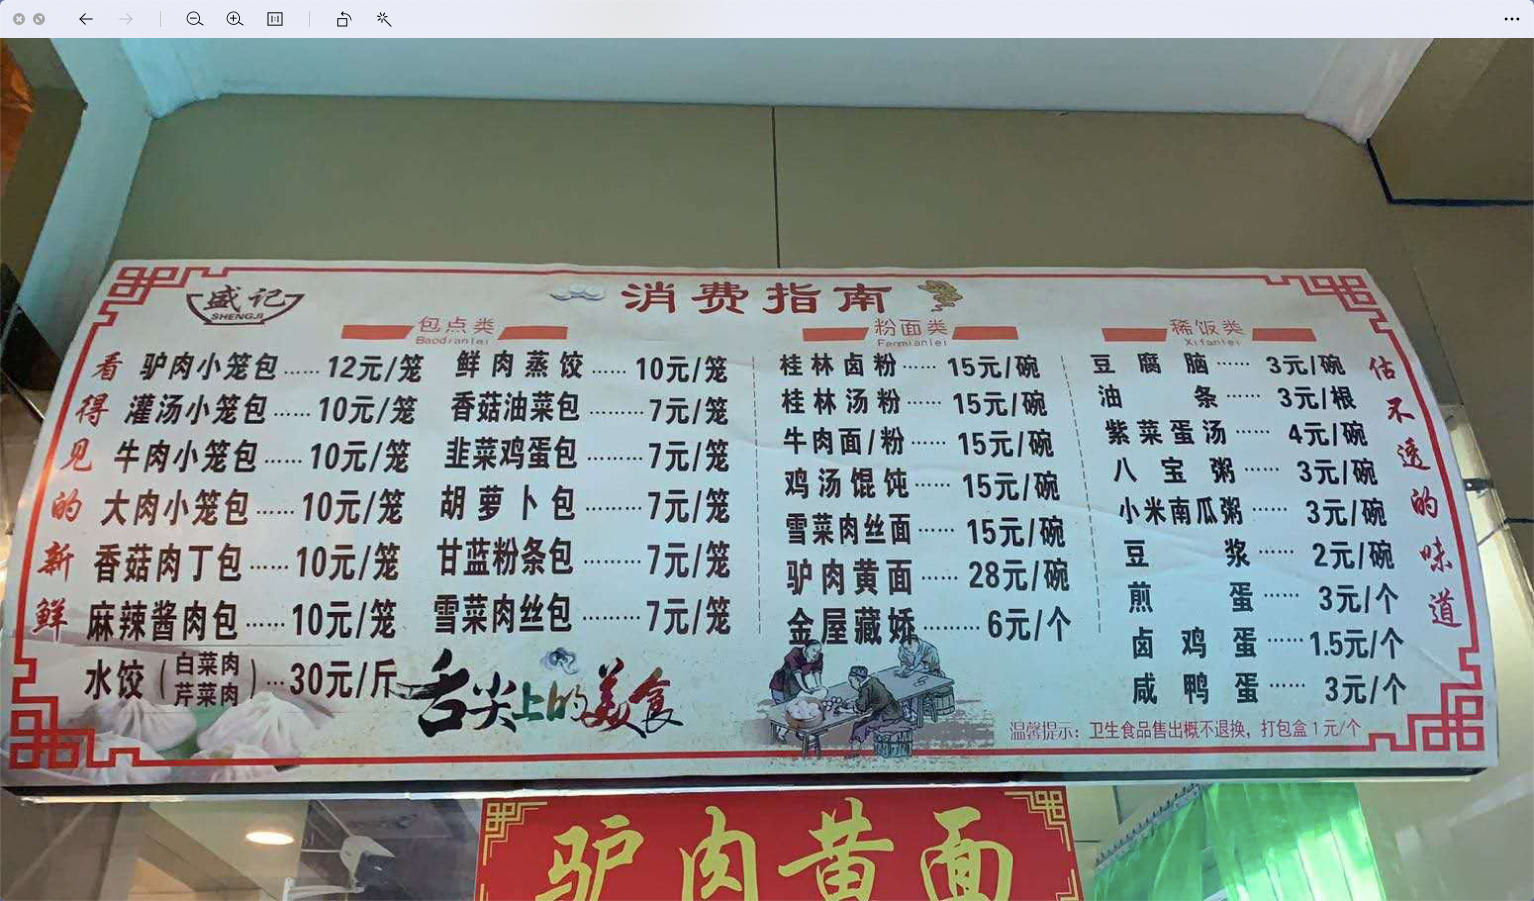 盛记
SHENGJI
消费指南
包点类
Baodianlei
驴肉小笼包……12元/笼
灌汤小笼包……10元/笼
牛肉小笼包……10元/笼
大肉小笼包……10元/笼
香菇肉丁包……10元/笼
麻辣酱肉包……10元/笼
水饺(白菜肉 芹菜肉)…30元/斤
鲜肉蒸饺……10元/笼
香菇油菜包………7元/笼
韭菜鸡蛋包………7元/笼
胡萝卜包………7元/笼
甘蓝粉条包………7元/笼
雪菜肉丝包………7元/笼
粉面类
Fenmianlei
桂林卤粉……15元/碗
桂林汤粉……15元/碗
牛肉面/粉……15元/碗
鸡汤馄饨……15元/碗
雪菜肉丝面……15元/碗
驴肉黄面……28元/碗
金屋藏娇………6元/个
稀饭类
Xifanlei
豆腐脑……3元/碗
油条……3元/根
紫菜蛋汤……4元/碗
八宝粥……3元/碗
小米南瓜粥……3元/碗
豆浆……2元/碗
煎蛋……3元/个
卤鸡蛋……1.5元/个
咸鸭蛋……3元/个
看得见的新鲜
估不透的味道
舌尖上的美食
温馨提示：卫生食品售出概不退换，打包盒1元/个
驴肉黄面